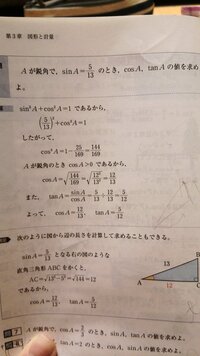 第3章 図形と計量
Aが鋭角で，sinA=5/13 のとき，cosA，tanAの値を求め
よ。
sin²A+cos²A=1 であるから，
(5/13)²+cos²A=1
したがって，
cos²A=1−25/169=144/169
Aが鋭角のとき cosA>0 であるから，
cosA=√(144/169)=√(12²/13²)=12/13
また， tanA=sinA/cosA=5/13÷12/13=5/12
よって， cosA=12/13， tanA=5/12
次のように図から辺の長さを計算して求めることもできる。
sinA=5/13 となる右の図のような
直角三角形ABCをかくと，
AC=√(13²−5²)=√144=12
であるから，
cosA=12/13， tanA=5/12
13
A
12
問7 Aが鋭角で，
のとき，sinA，
tanA=2 のとき，